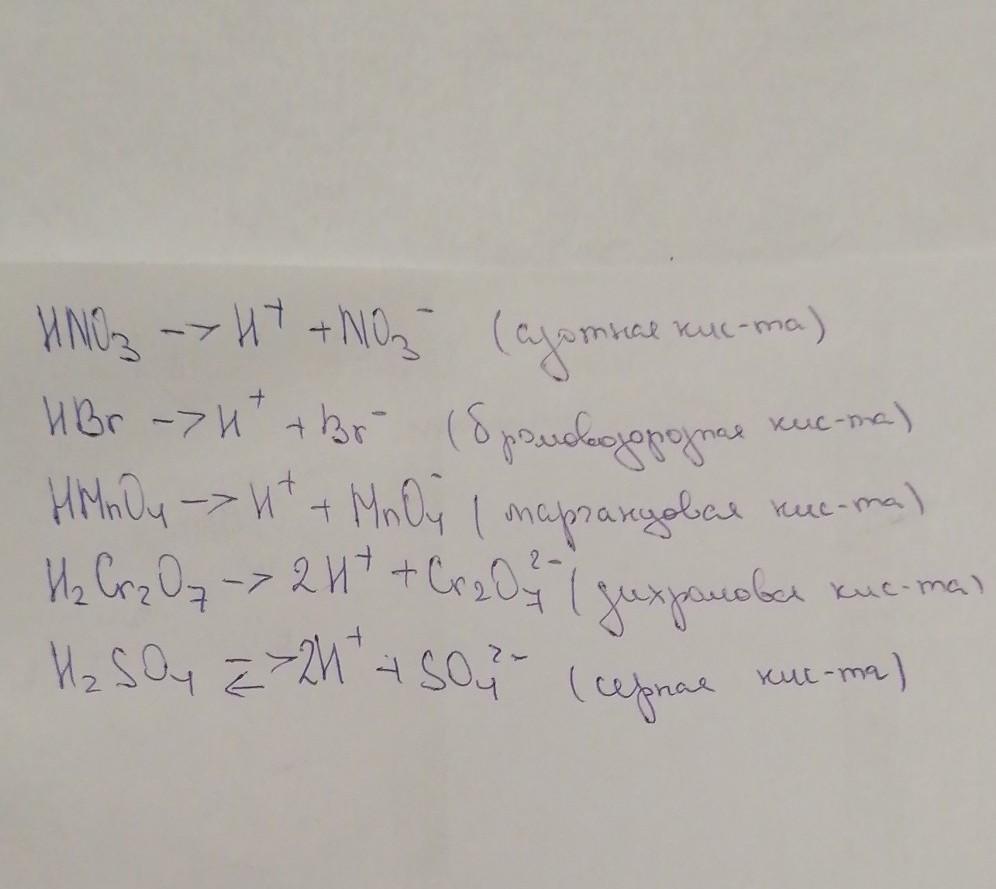 HNO₃ --> H⁺ + NO₃⁻ (азотная кис-та)
HBr --> H⁺ + Br⁻ (бромоводородная кис-та)
HMnO₄ --> H⁺ + MnO₄⁻ (марганцовая кис-та)
H₂Cr₂O₇ --> 2H⁺ + Cr₂O₇²⁻ (дихромовая кис-та)
H₂SO₄ ⇄ 2H⁺ + SO₄²⁻ (серная кис-та)